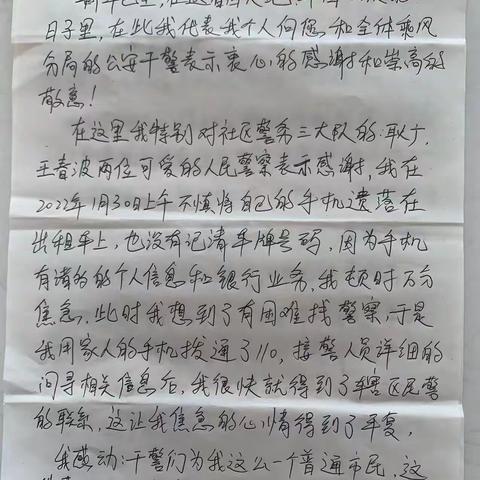 日子里,在此我代表我个人何偲和全体乘风
分局的公安干警表示衷心的感谢和崇高的
敬意!
在这里我特别对社区警务三大队的:耿广
王春波两位可爱的人民警察表示感谢,我在
2022年1月30日上午不慎将自己的手机遗落在
出租车上,也没有记清车牌号码,因为手机
有诸多的个人信息和银行业务,我顿时万分
焦急,此时我想到了有困难找警察,于是
我用家人的手机拨通了110,接警人员详细的
问寻相关信息后,我很快就得到了辖区民警
的联系,这让我焦急的心情得到了平复,
我感动:干警们为我这么一个普通市民,这